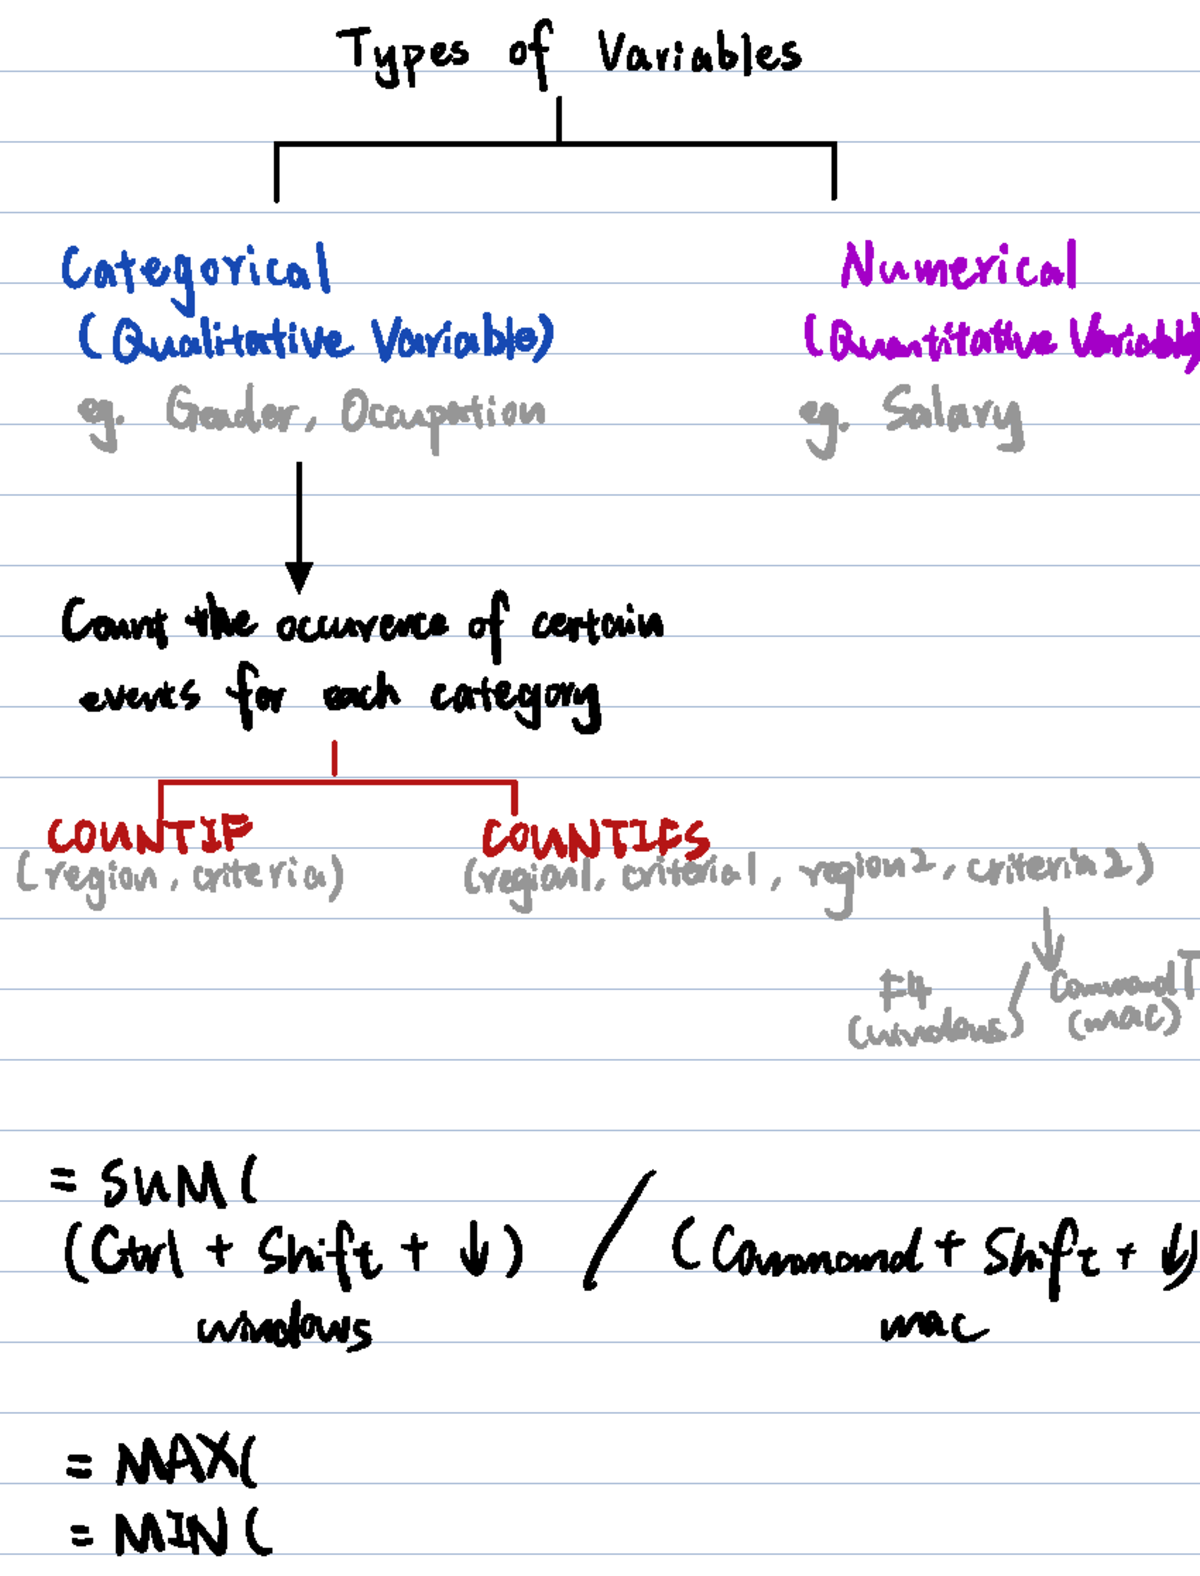 Types of Variables
Categorical
Numerical
(Qualitative Variable)
(Quantitative Variable)
eg. Gender, Occupation
eg. Salary
Count the occurence of certain
events for each category
COUNTIF
COUNTIFS
(region, criteria)
(region1, criteria1, region2, criteria2)
F4
(windows)
/
Command T
(mac)
= SUM (
(Ctrl + Shift + ↓) / (Command + Shift + ↓)
windows
mac
= MAX(
= MIN (